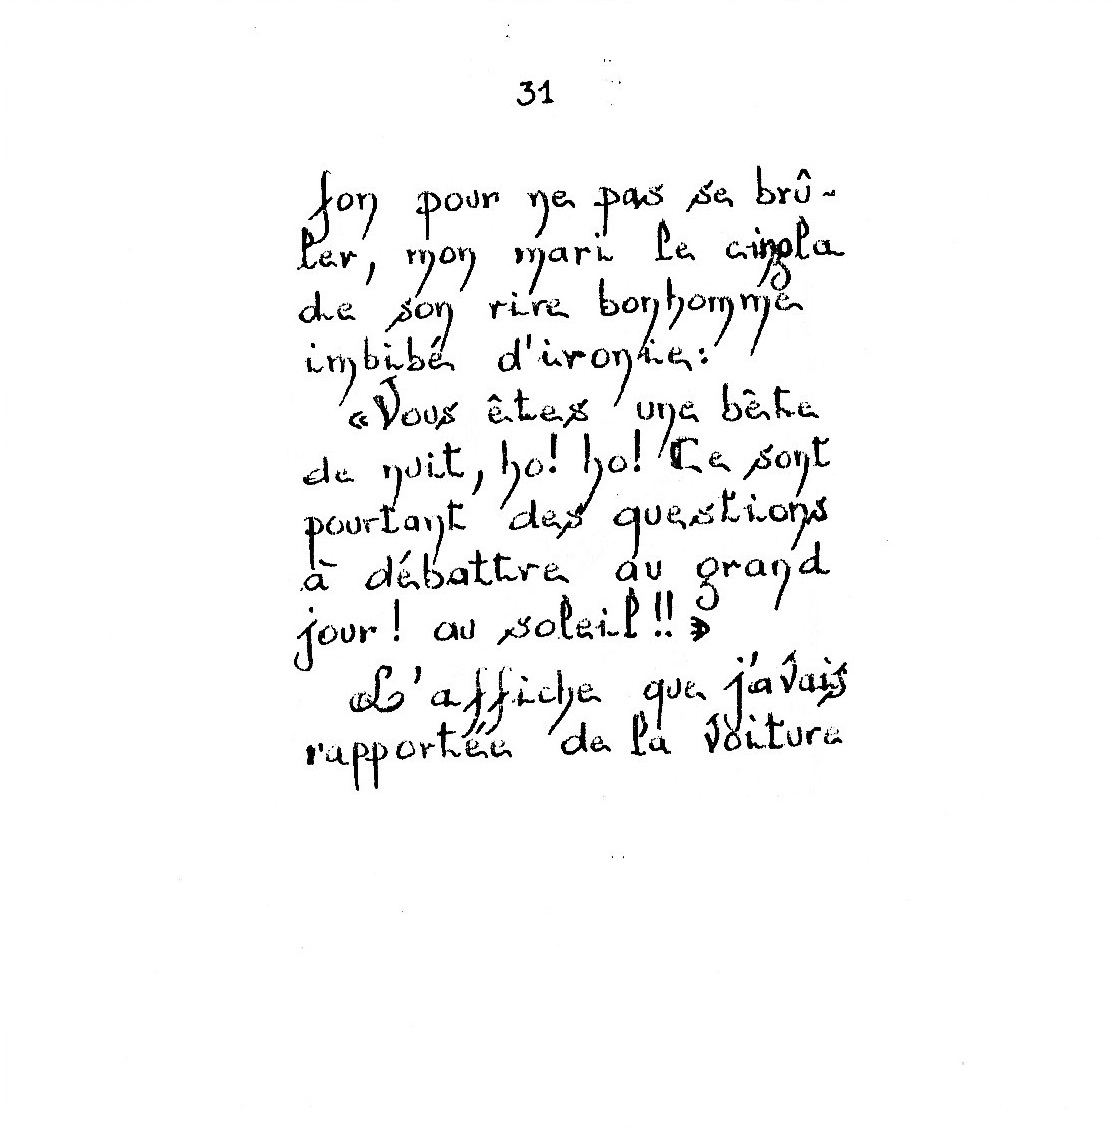 31
fon pour ne pas se brû-
ler, mon mari le cingla
de son rire bonhomme
imbibé d'ironie:
«Vous êtes une bête
de nuit, ho! ho! Ce sont
pourtant des questions
à débattre au grand
jour! au soleil!!»
L'affiche que j'avais
rapportée de la voiture